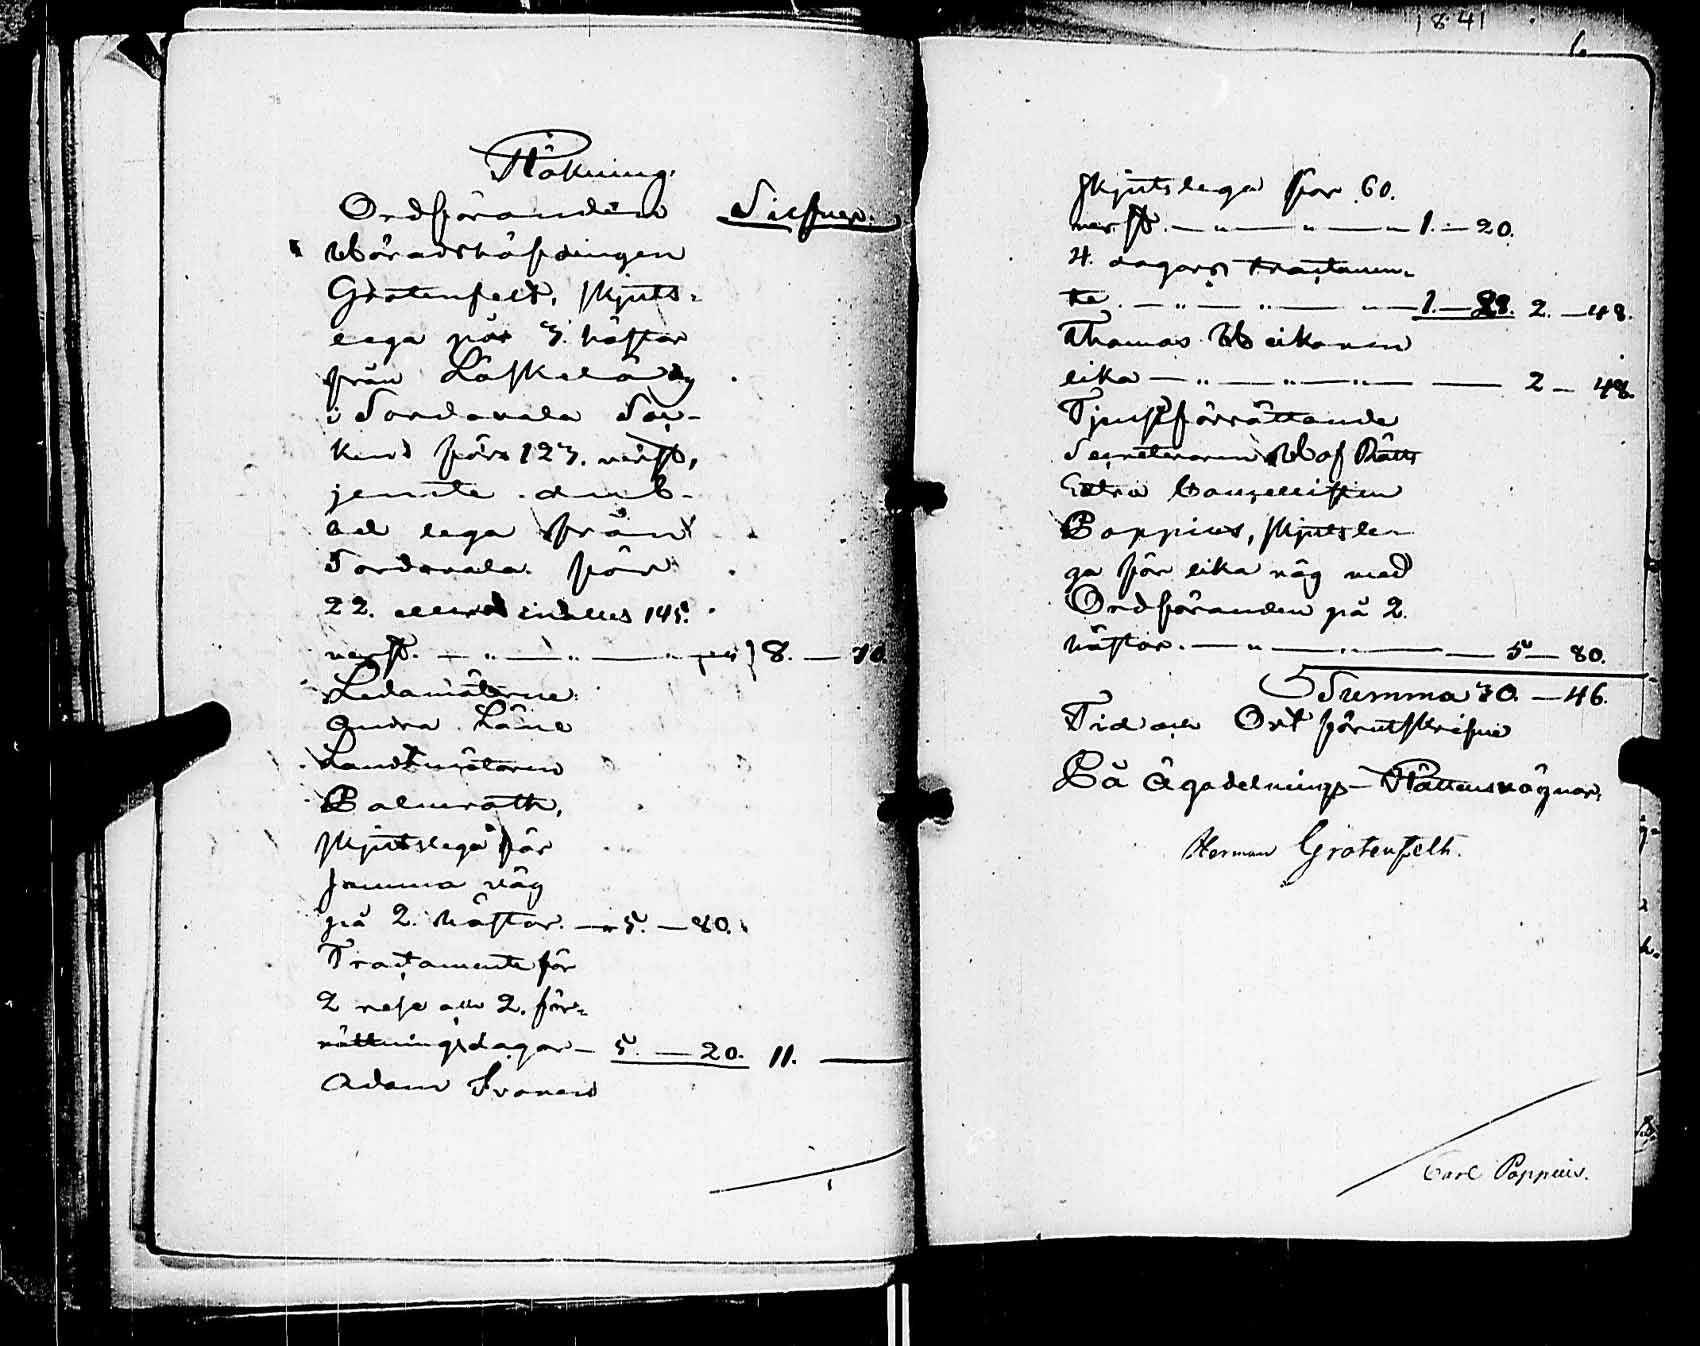 Räkning.
Ordföranden Silfver.
Häradshöfdingen
Grotenfelt, skjuts-
lega för 3. hästar
från Läskelä by
i Sordavala Soc-
ken för 123. verst,
jemte dub-
bel lega från
Sordavala för
22. eller inalles 145.
verst. — " — " — " — 8. — 70.
Ledamöterne
Andra Läne
Landtmätaren
Palmroth,
skjutslega för
samma väg
på 2. hästar. — 5. — 80.
Tractamente för
2 rese och 2. för-
rättningsdagar — 5. — 20. 11. —
Adam Ivonen
1841
6
skjutslega för 60.
verst. — " — " — " — 1. — 20.
4. dagars tractamen-
te. — " — " — " — 1. — 28. 2. — 48.
Thomas Weikanen
lika — " — " — " — 2 — 48.
Tjenstförrättande
Secreteraren Hof Rätts
Extra Cancellisten
Poppius, skjutsle-
ga för lika väg med
Ordföranden på 2.
hästar. — " — " — 5 — 80.
Summa 30. — 46.
Tid och Ort förutskrifne
På Ägodelnings-Rättens vägnar,
Herman Grotenfelt.
Carl Poppius.